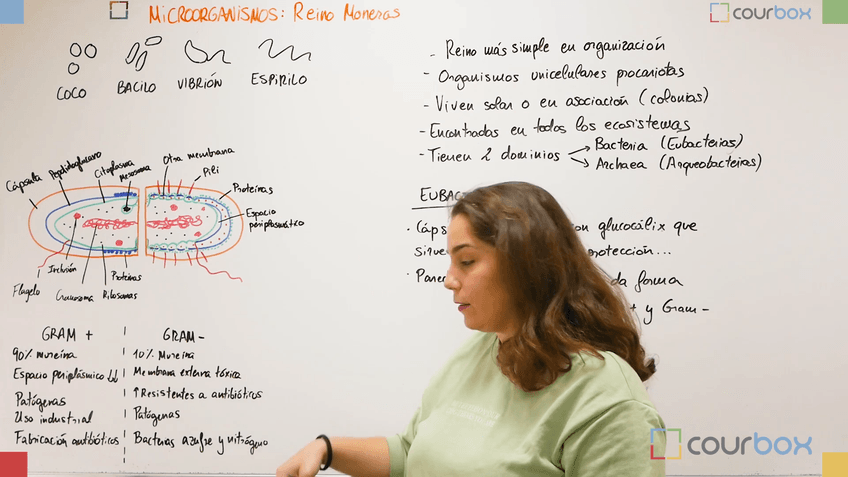 MICROORGANISMOS: Reino Moneras
courbox
COCO
BACILO
VIBRIÓN
ESPIRILO
- Reino más simple en organización
- Organismos unicelulares procariotas
- Viven solar o en asociación (colonias)
- Encontradas en todos los ecosistemas
- Tienen 2 dominios
Bacteria (Eubacterias)
Archaea (Arqueobacterias)
Cápsula
Peptidoglucano
Citoplasma
Mesosoma
Otra membrana
Pili
Proteínas
Espacio periplasmático
Inclusión
Flagelo
Cromosoma
Ribosomas
Proteínas
EUBAC
on glucocálix que
sirve
protección...
da forma
+ y Gram -
GRAM +
90% mureína
Espacio periplásmico
Patógenas
Uso industrial
Fabricación antibióticos
GRAM -
10% Mureína
Membrana externa tóxica
↑Resistentes a antibióticos
Patógenas
Bacterias azufre y nitrógeno
courbox